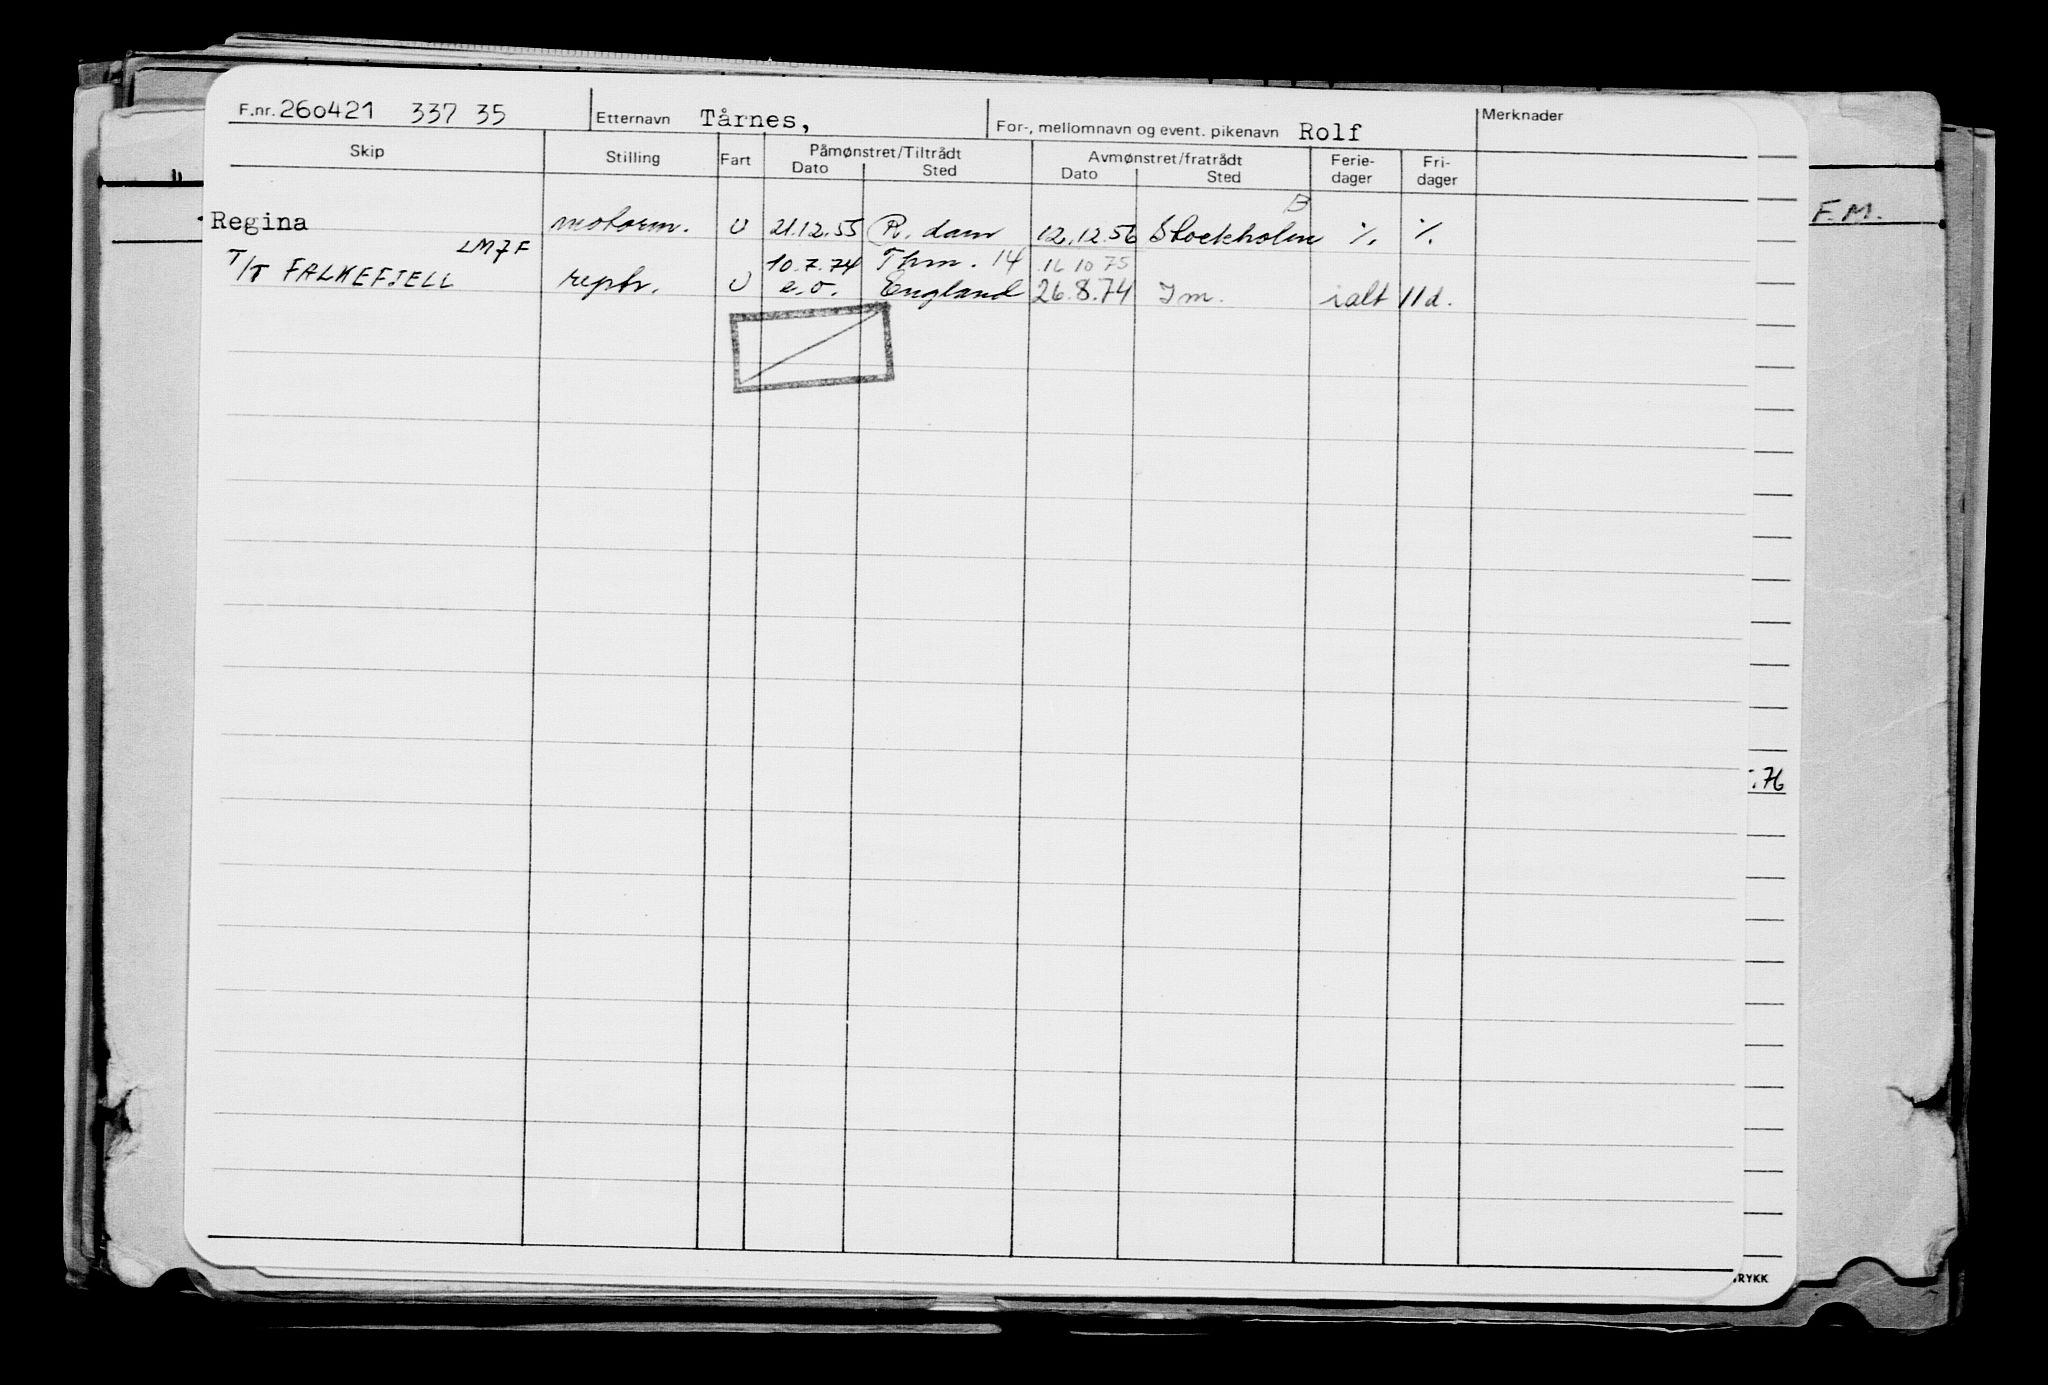 F.nr. 260421 337 35 Etternavn Tårnes, For-, mellomnavn og event. pikenavn Rolf Merknader
Skip Stilling Fart Påmønstret/Tiltrådt Avmønstret/fratrådt Ferie- Fri-
Dato Sted Dato Sted dager dager
B
Regina motorm. U 21.12.55 R.dam 12.12.56 Stockholm % %
LM7F 10.7.74 Thm. 14 16 10 75
T/T FALKEFJELL reptr. U e.o. England 26.8.74 Im. ialt 11 d.
"
F.M.
.76
RYKK